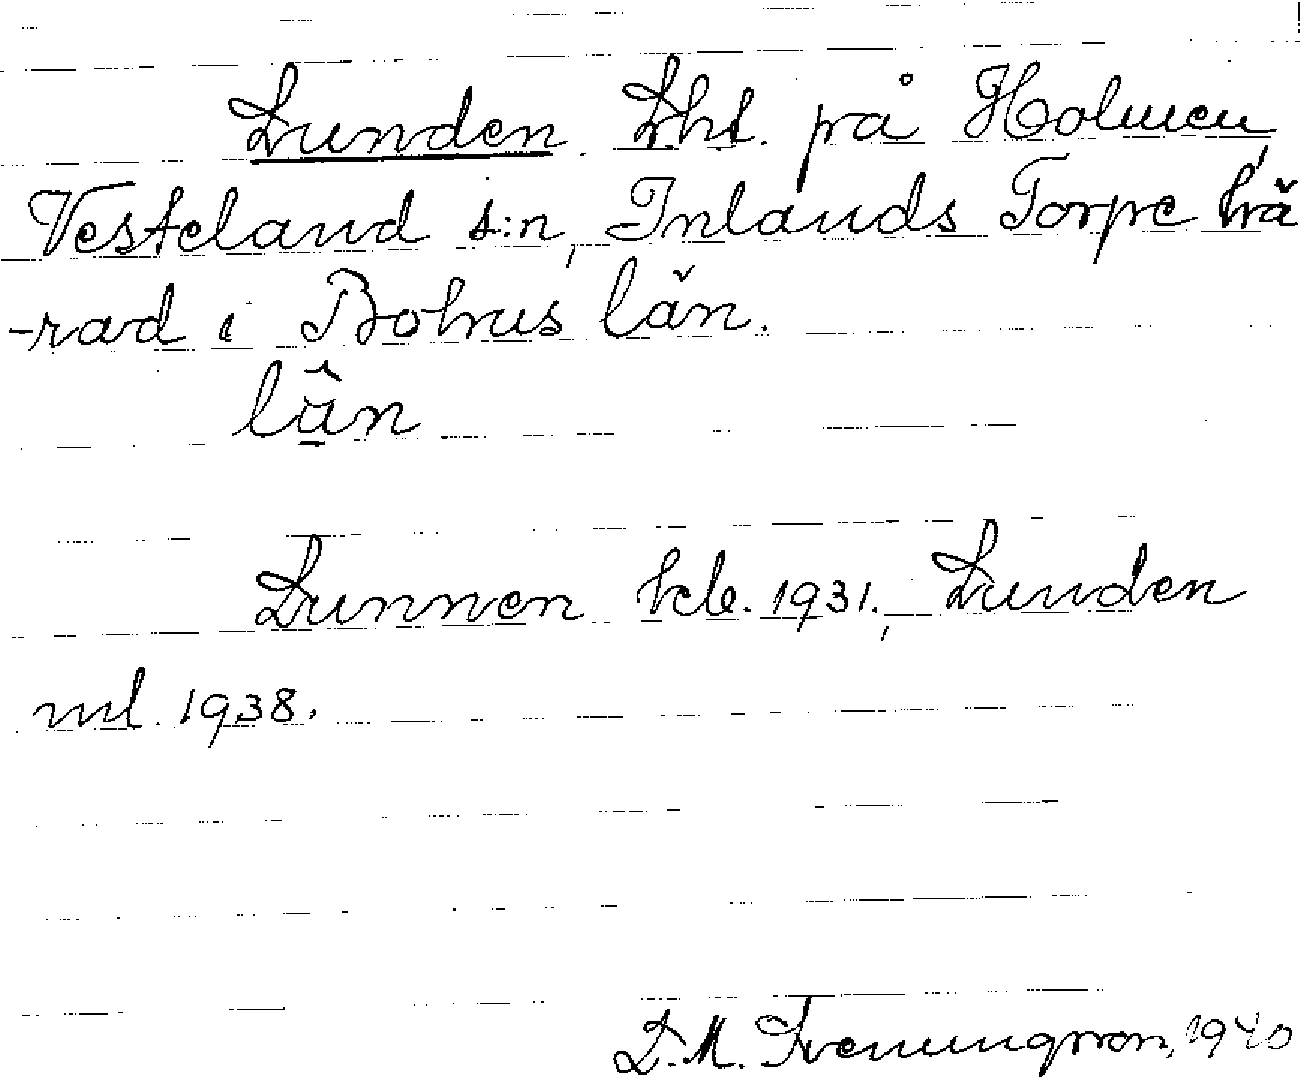 Lunden. Lht. på Holmen,
Vesteland s:n, Inlands Torpe hä
-rad i Bohus län.
lûn
Lunnen hcb. 1931., Lunden
ml. 1938.
D. M. Svenungsson, 1940